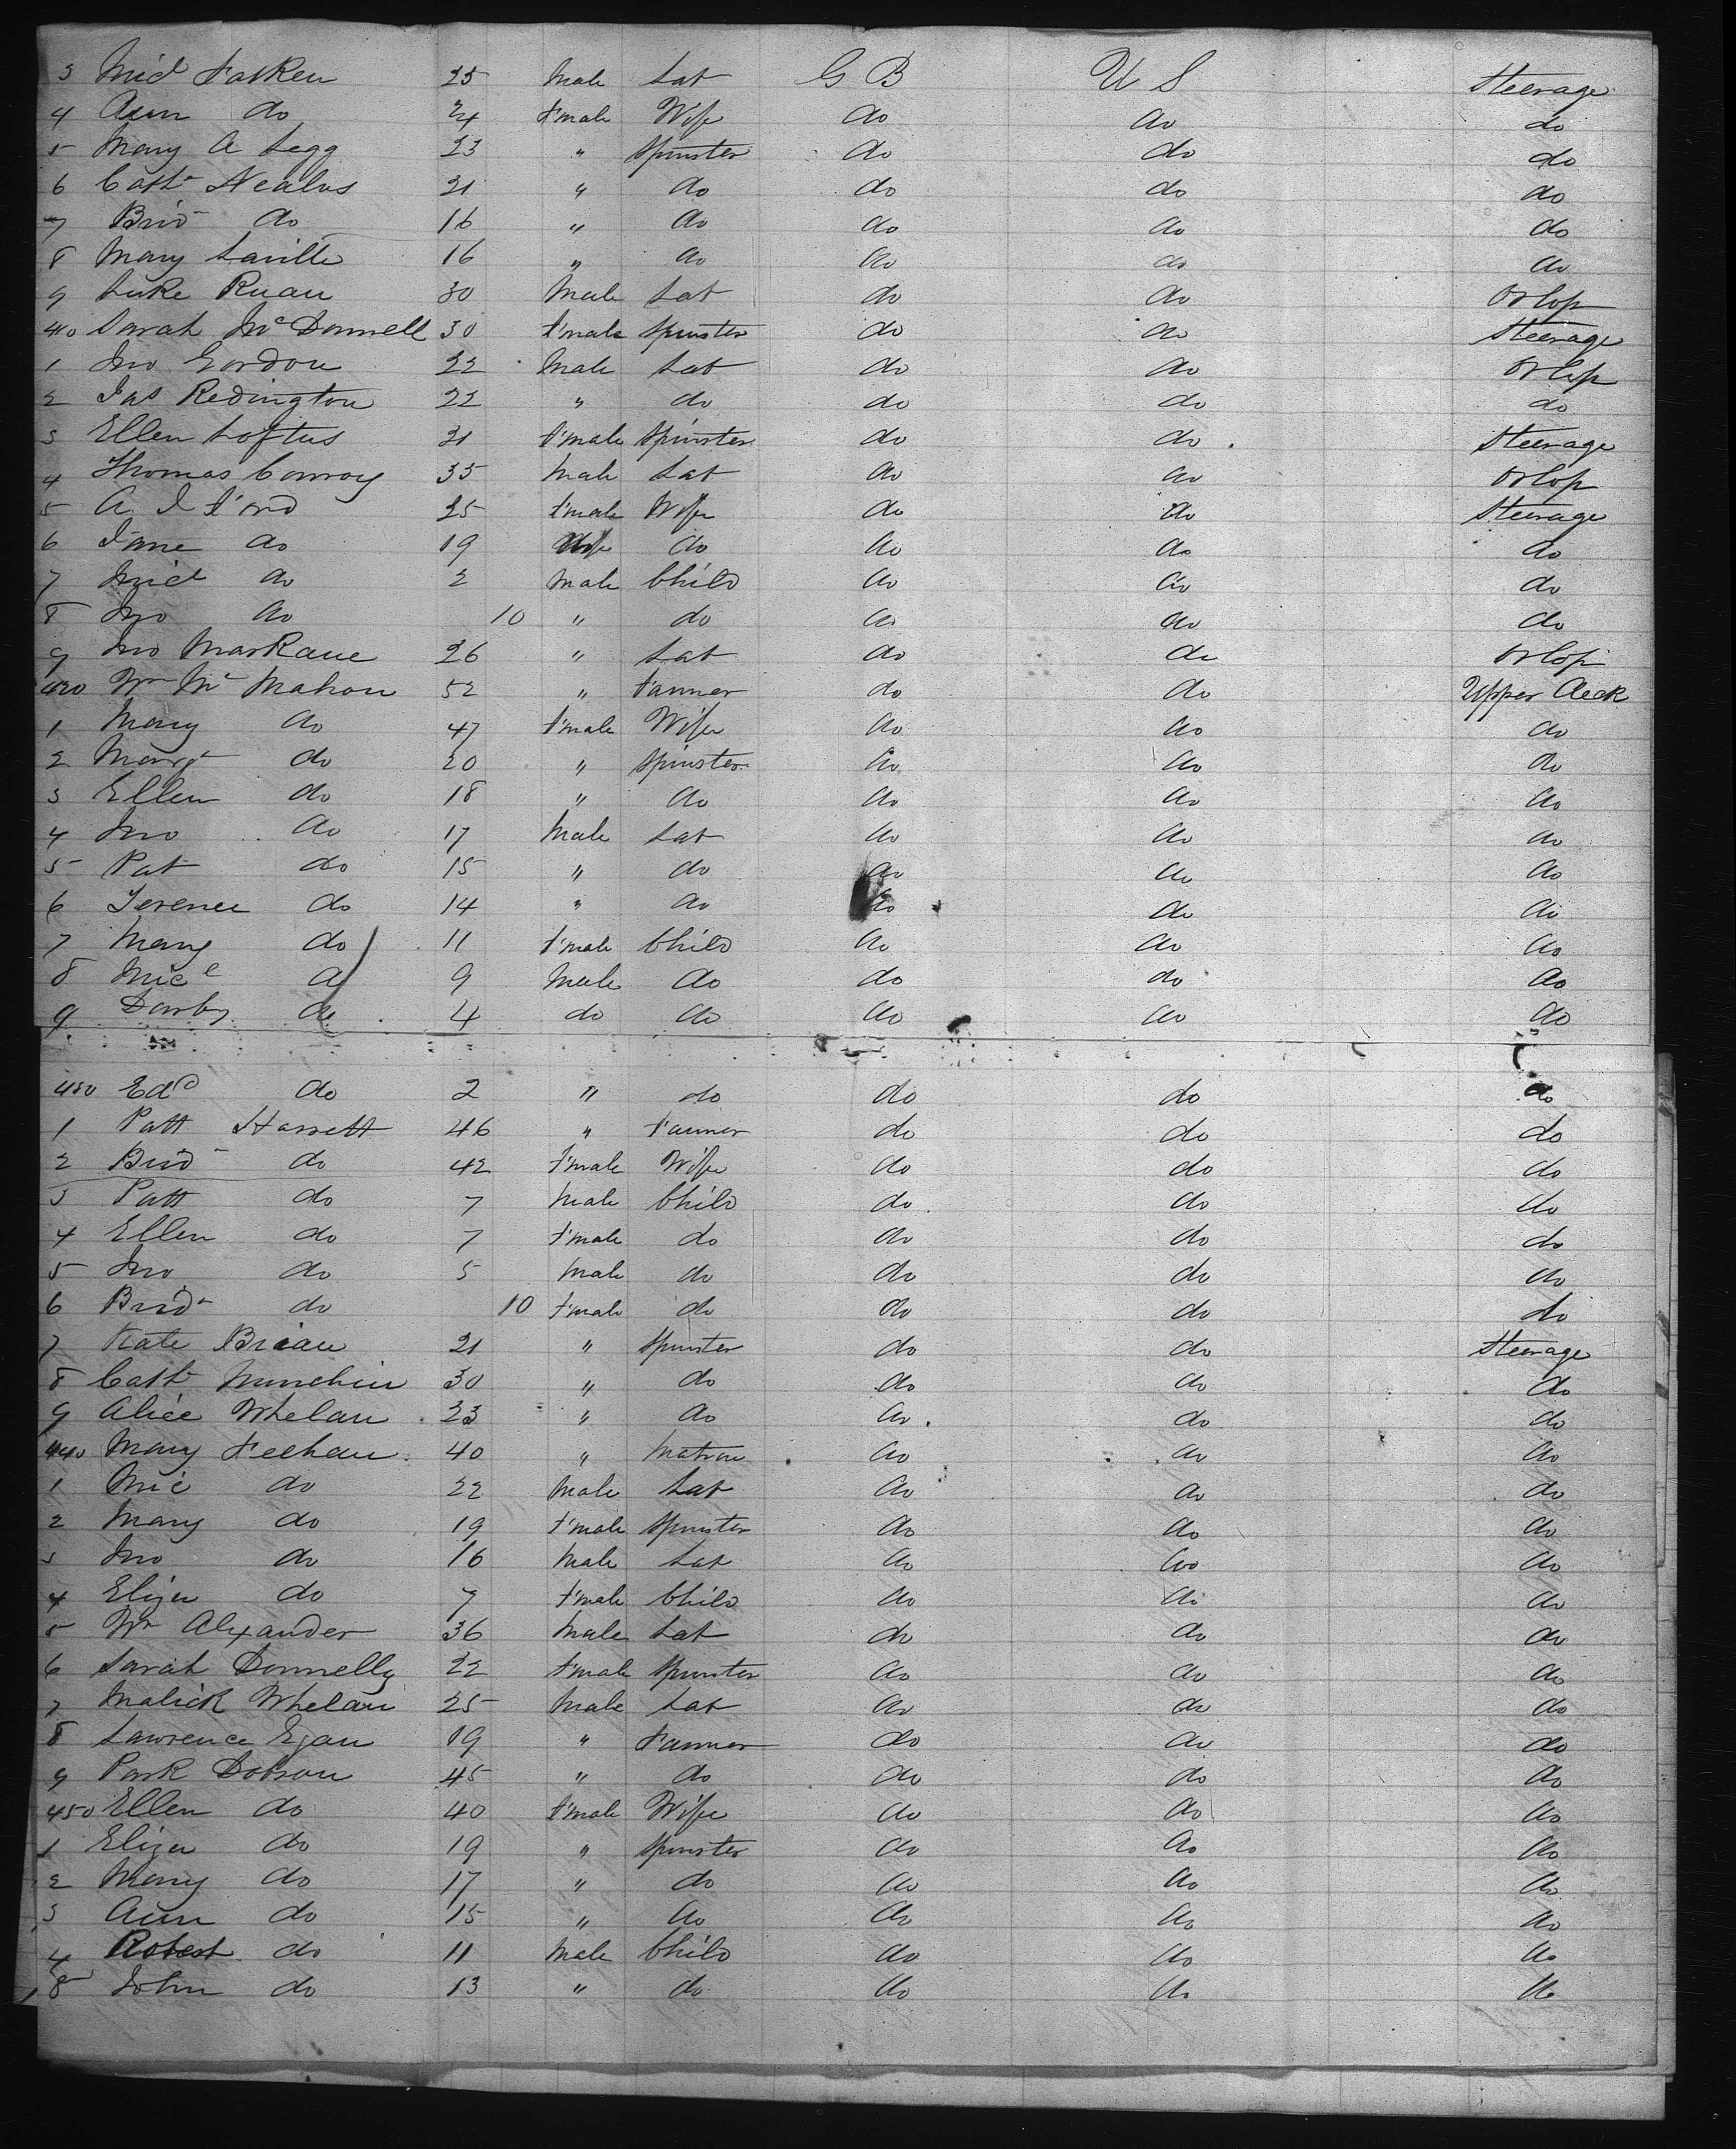 3 Micl Farken 25 Male Lab G B U S Steerage
4 Ann do 24 F'male Wife do do do
5 Mary A Legg 23 " Spinster do do do
6 Cath Nealus 21 " do do do do
7 Brid do 16 " do do do do
8 Mary Saville 16 " do do do do
9 Luke Ruan 30 Male Lab do do Orlop
40 Sarah McDonnell 30 F'male Spinster do do Steerage
1 Jno Gordon 22 Male Lab do do Orlop
2 Jas Redington 22 " do do do do
3 Ellen Loftus 21 F'male Spinster do do Steerage
4 Thomas Conroy 35 Male Lab do do Orlop
5 A J Ford 25 F'male Wife do do Steerage
6 Jane do 19 do do do do
7 Micl do 2 Male Child do do do
8 Jno do 10 " do do do do
9 Jno Markane 26 " Lab do do Orlop
420 Wm McMahon 52 " Farmer do do Upper Deck
1 Mary do 47 F'male Wife do do do
2 Margt do 20 " Spinster do do do
3 Ellen do 18 " do do do do
4 Jno do 17 Male Lab do do do
5 Pat do 15 " do do do do
6 Terence do 14 " do do do do
7 Mary do 11 F'male Child do do do
8 Micl do 9 Male do do do do
9 Darby do 4 do do do do do
430 Edd do 2 " do do do do
1 Patt Harrett 46 " Farmer do do do
2 Brid do 42 F'male Wife do do do
3 Patt do 7 Male Child do do do
4 Ellen do 7 F'male do do do do
5 Jno do 5 Male do do do do
6 Brid do 10 F'male do do do do
7 Kate Brian 21 " Spinster do do Steerage
8 Cath Minchin 30 " do do do do
9 Alice Whelan 23 " do do do do
440 Mary Feehan 40 " Matron do do do
1 Mic do 22 Male Lab do do do
2 Mary do 19 F'male Spinster do do do
3 Jno do 16 Male Lab do do do
4 Eliza do 7 F'male Child do do do
5 Wm Alexander 36 Male Lab do do do
6 Sarah Donnelly 22 F'male Spinster do do do
7 Malick Whelan 25 Male Lab do do do
8 Lawrence Egan 19 " Farmer do do do
9 Park Dobson 45 " do do do do
450 Ellen do 40 F'male Wife do do do
1 Eliza do 19 " Spinster do do do
2 Mary do 17 " do do do do
3 Ann do 15 " do do do do
4 Robert do 11 Male Child do do do
5 John do 13 " do do do do